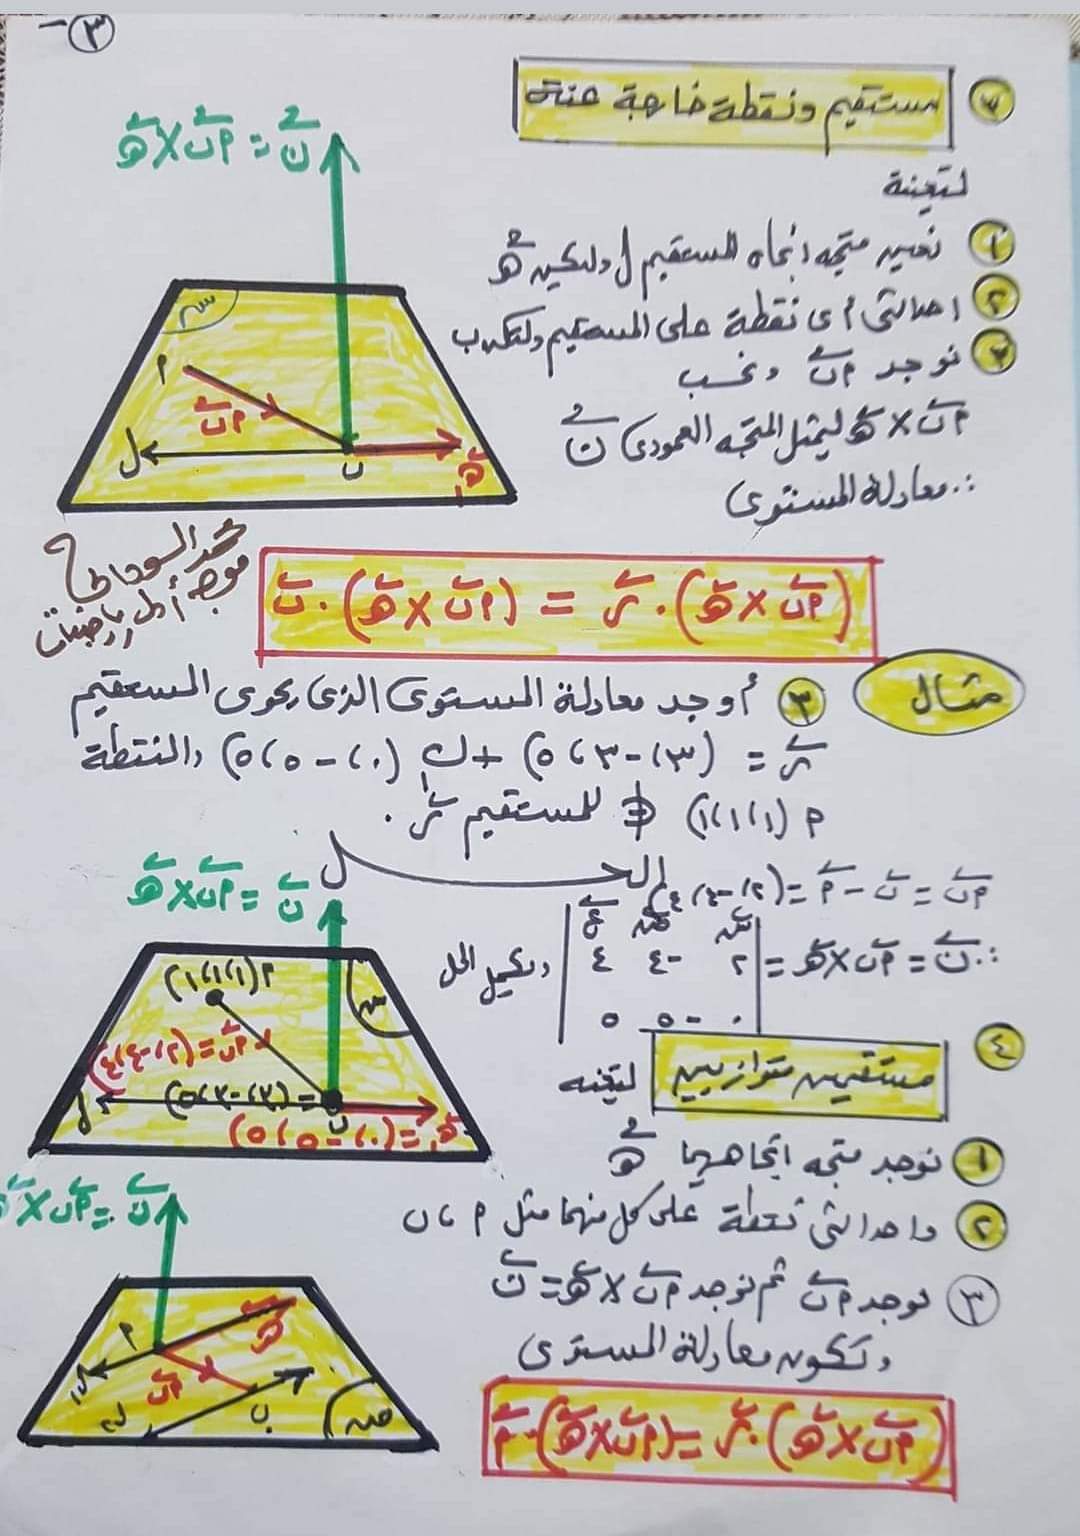 ٣
٣ مستقيم ونقطة خارجة عنه
لتعينة
١ نعين متجه اتجاه المستقيم ل وليكن هـ
٢ احداثى أى نقطة على المستقيم ولتكن ب
٣ نوجد أب ونحسب
أب × هـ ليمثل المتجه العمودى ن
∴ معادلة المستوى
ن = أب × هـ
س
أ
أب
ل
ب
هـ
(أب × هـ) . ر = (أب × هـ) . ب
محمد السوداني
موجه أول رياضيات
مثال
٣ أوجد معادلة المستوى الذى يحوى المستقيم
ر = (٣، -٣، ٥) + ك (٠، -٥، ٥) والنقطة
أ (١،١،١) ∉ للمستقيم ر .
الحل
أب = ب - أ = (٢، -٤، ٤)
∴ ن = أب × هـ = | س ص ع
٢ -٤ ٤
٠ -٥ ٥ | ونكمل الحل
ن = أب × هـ
س
أ (١،١،١)
أب = (٢، -٤، ٤)
ل
ب = (٣، -٣، ٥)
هـ = (٠، -٥، ٥)
٤ مستقيمين متوازيين لتعينه
١ نوجد متجه اتجاههما هـ
٢ واحداثى نقطة على كل منهما مثل أ، ب
٣ نوجد أب ثم نوجد أب × هـ = ن
وتكون معادلة المستوى
ن = أب × هـ
أ
هـ
ل
أب
ب
ل
ص
(أب × هـ) . ر = (أب × هـ) . أ